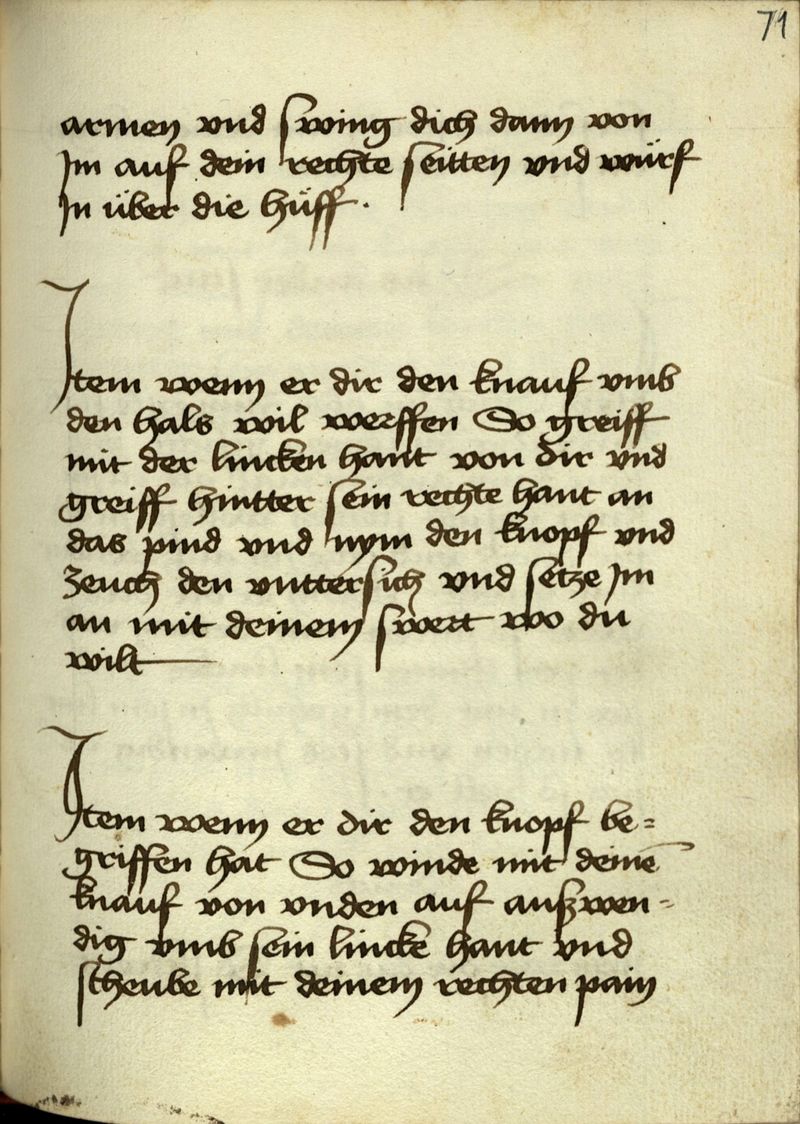 71
armen vnd swing dich dann von
Im auf dein rechte seitten vnd würf
In über die hüff.
Item wenn er dir den knauf vmb
den hals wil werffen So greiff
mit der lincken hant von dir vnd
greiff hintter sein rechte hant an
das pind vnd nym den knopf vnd
zeuch den vnttersich vnd setze Im
an mit deinem swert wo du
wilt
Item wenn er dir den knopf be=
griffen hat So winde mit deinē
knauf von vnden auf außwen=
dig vmb sein lincke hant vnd
scheube mit deinem rechten pain